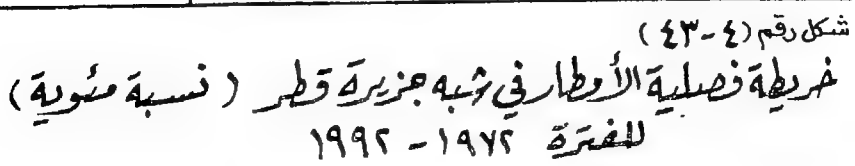 شكل رقم (٤-٤٣)
خريطة فصلية الأمطار في شبه جزيرة قطر (نسبة مئوية)
للفترة ١٩٧٢ - ١٩٩٢